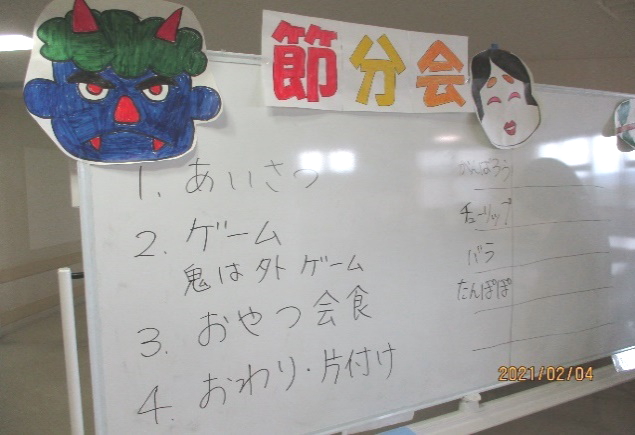 節分会
1. あいさつ
2. ゲーム
鬼は外 ゲーム
3. おやつ会食
4. おわり・片付け
がんばろう
チューリップ
バラ
たんぽぽ
2021/02/04